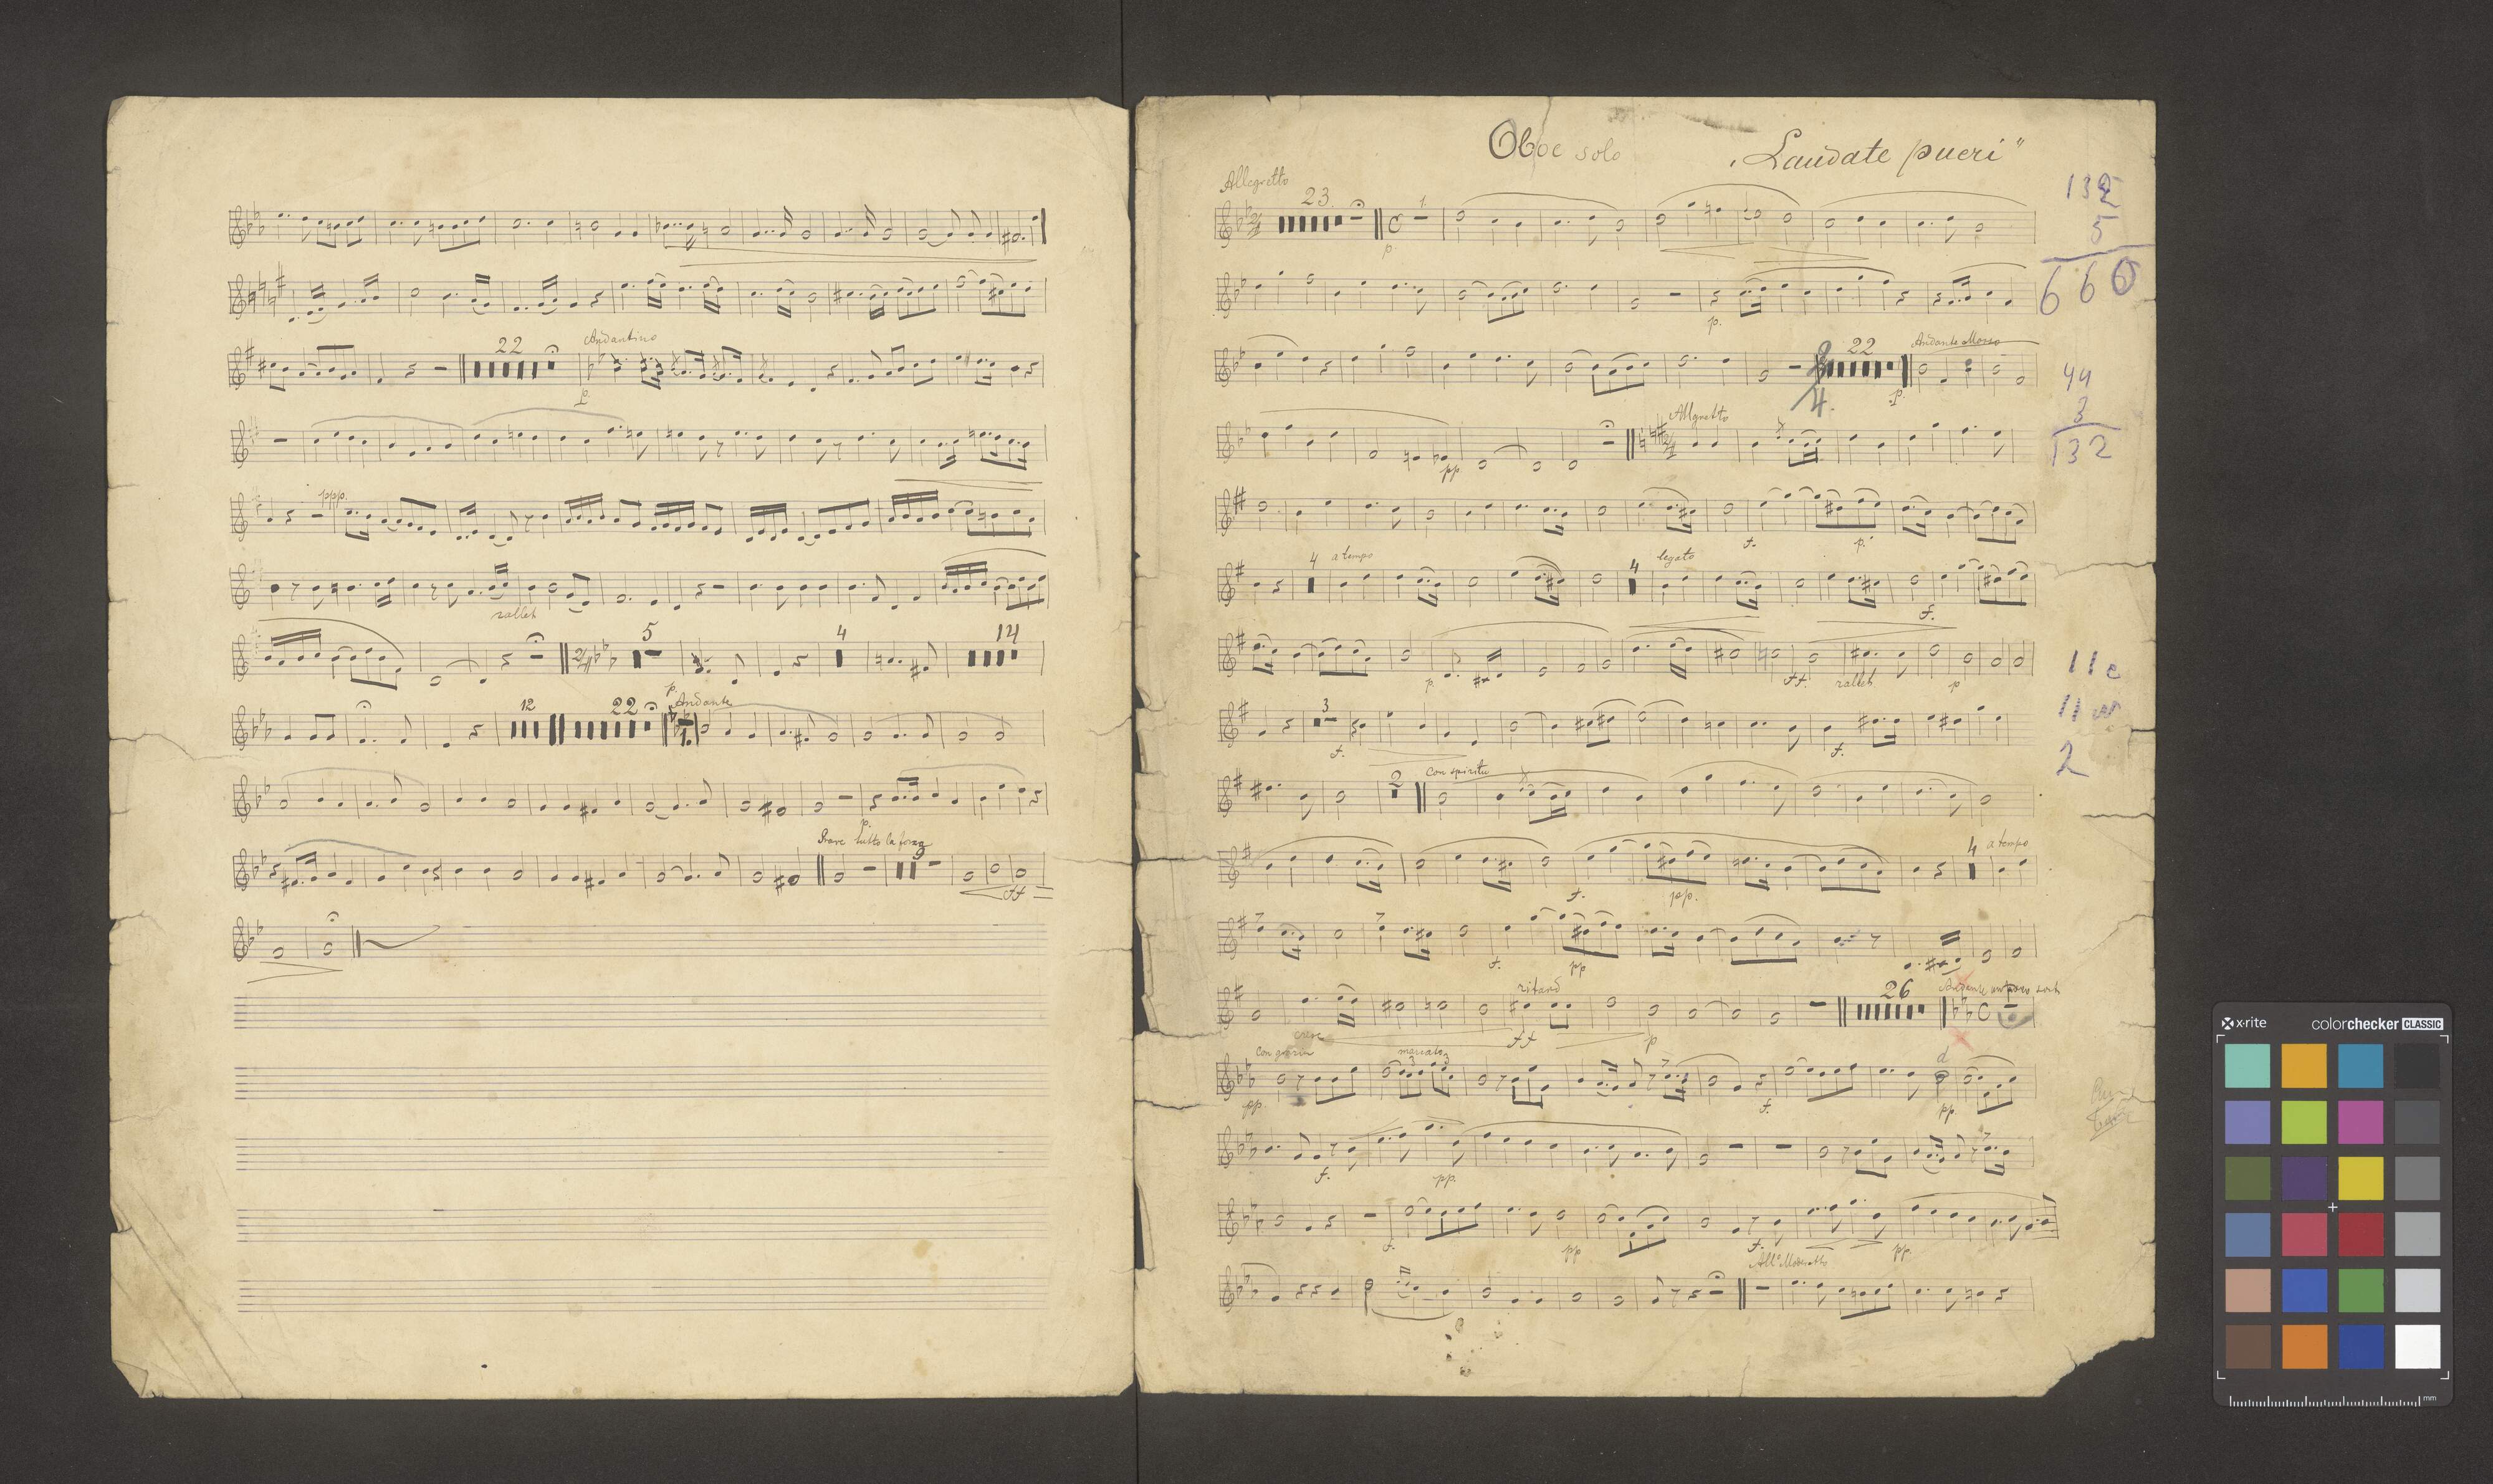 22
Andantino
p.
ppp.
rallet
5
4
14
p.
12
22
Andante
p.
ff
Oboe solo
„Laudate pueri"
Allegretto
23.
1.
p.
132
5
660
p.
22
Andante Mosso
4.
p.
44
3
132
Allgretto
pp.
f.
p.
4
a tempo
4
legato
f.
p.
ff.
rallet
p
11
11
2
3
f.
f.
2
con spiritu
4
a tempo
f.
pp.
f.
pp
ritard
26
cresc
ff
p
con grazia
marcato
3
3
d
pp
f.
pp.
f.
pp.
f.
pp
f.
pp.
All° Moderatto
x-rite
colorchecker CLASSIC
mm